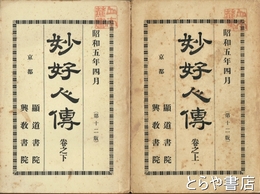 昭和五年四月
第十二版
妙好人傳
卷之上
京都
顯道書院
興教書院
昭和五年四月
第十二版
妙好人傳
卷之下
京都
顯道書院
興教書院
とらや書店